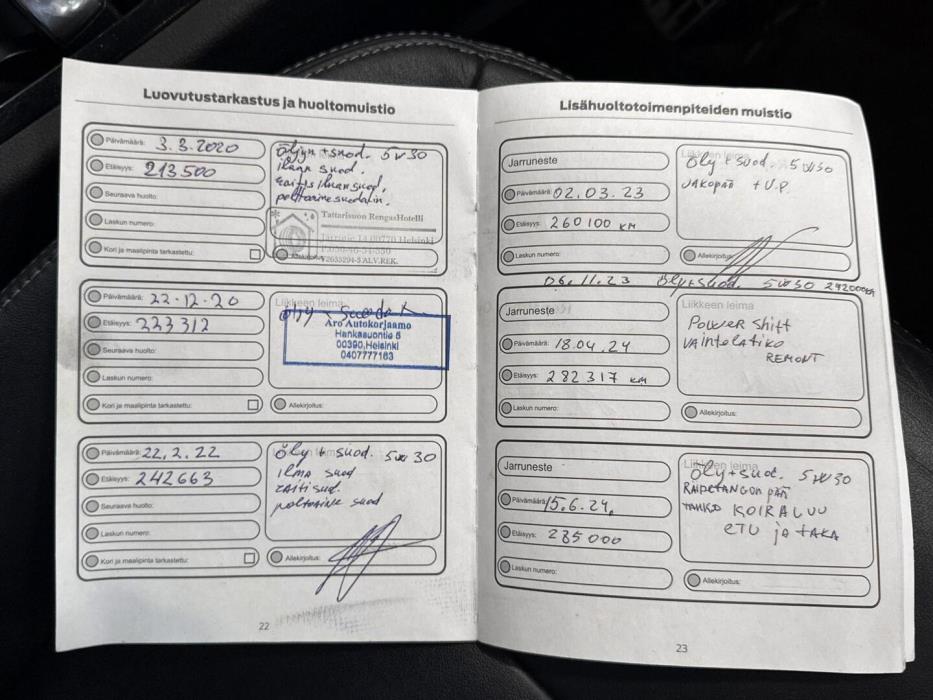 Luovutustarkastus ja huoltomuistio
Päivämäärä: 3.3.2020
Etäisyys: 213500
Seuraava huolto:
Laskun numero:
Kori ja maalipinta tarkastettu:
öljyn + suod. 5w30
ilman suod.
raitis ilman suod.
polttoaine suodatin.
Tattarisuon RengasHotelli
00770 Helsinki
Y2635294-5 ALV.REK.
Päivämäärä: 22.12.20
Etäisyys: 223312
Seuraava huolto:
Laskun numero:
Kori ja maalipinta tarkastettu:
Liikkeen leima
öljy
Aro Autokorjaamo
Hankasuontie 5
00390, Helsinki
0407777163
Allekirjoitus:
Päivämäärä: 22.2.22
Etäisyys: 242663
Seuraava huolto:
Laskun numero:
Kori ja maalipinta tarkastettu:
öly + suod. 5w30
ilma suod
raitisud.
poltoaine suod
Allekirjoitus:
22
Lisähuoltotoimenpiteiden muistio
Jarruneste
Päivämäärä: 02.03.23
Etäisyys: 260100 KM
Laskun numero:
öly + suod. 5w30
JAKOPÄÄ + V.P.
Allekirjoitus:
06.11.23 öly+suod. 5w30
Jarruneste
Päivämäärä: 18.04.24
Etäisyys: 282317 KM
Laskun numero:
Liikkeen leima
POWER Shift
VAIHTELATIKO
REMONT
Allekirjoitus:
Jarruneste
Päivämäärä: 15.6.24.
Etäisyys: 285000
Laskun numero:
Liikkeen leima
öly+suod. 5w30
KOIRALUU
ETU ja TAKA
Allekirjoitus:
23